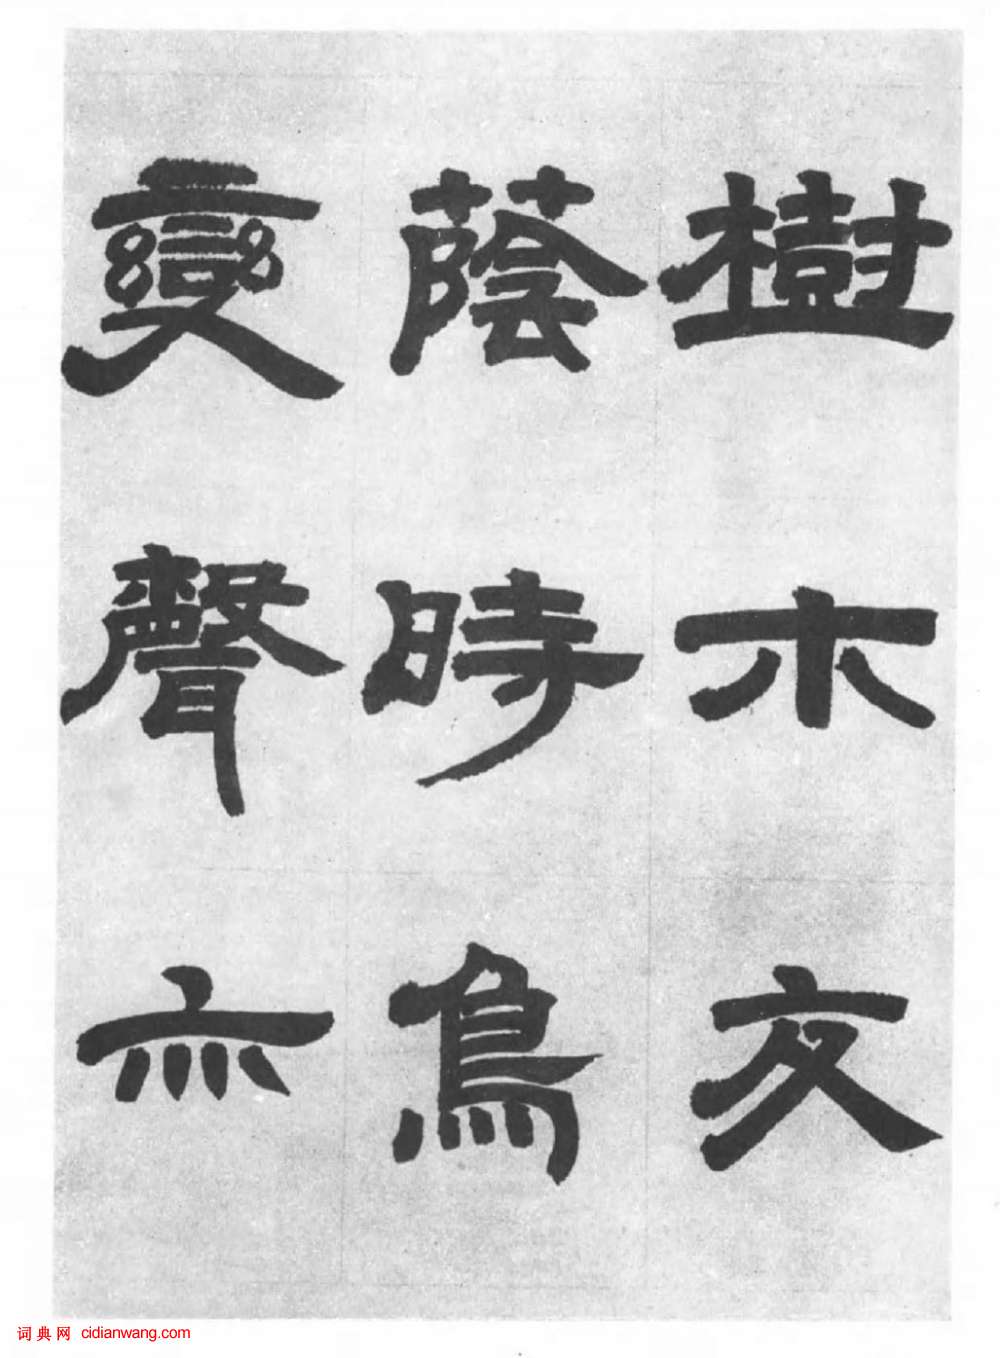 樹木交
蔭時鳥
變聲亦
词典网 cidianwang.com